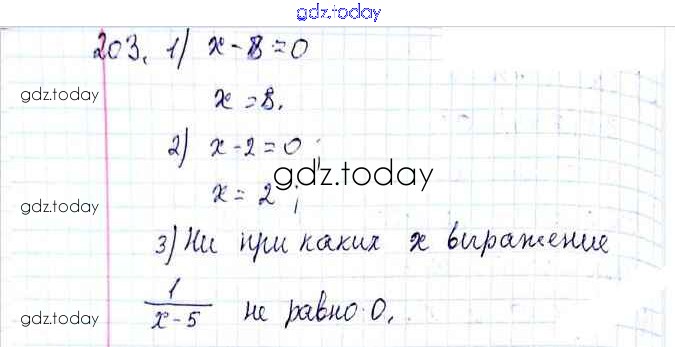 gdz.today
203. 1) x - 8 = 0
gdz.today
x = 8.
2) x - 2 = 0 ;
gdz.today
x = 2 ;
gdz.today
3) Ни при каких x выражение
1
x - 5
не равно 0.
gdz.today